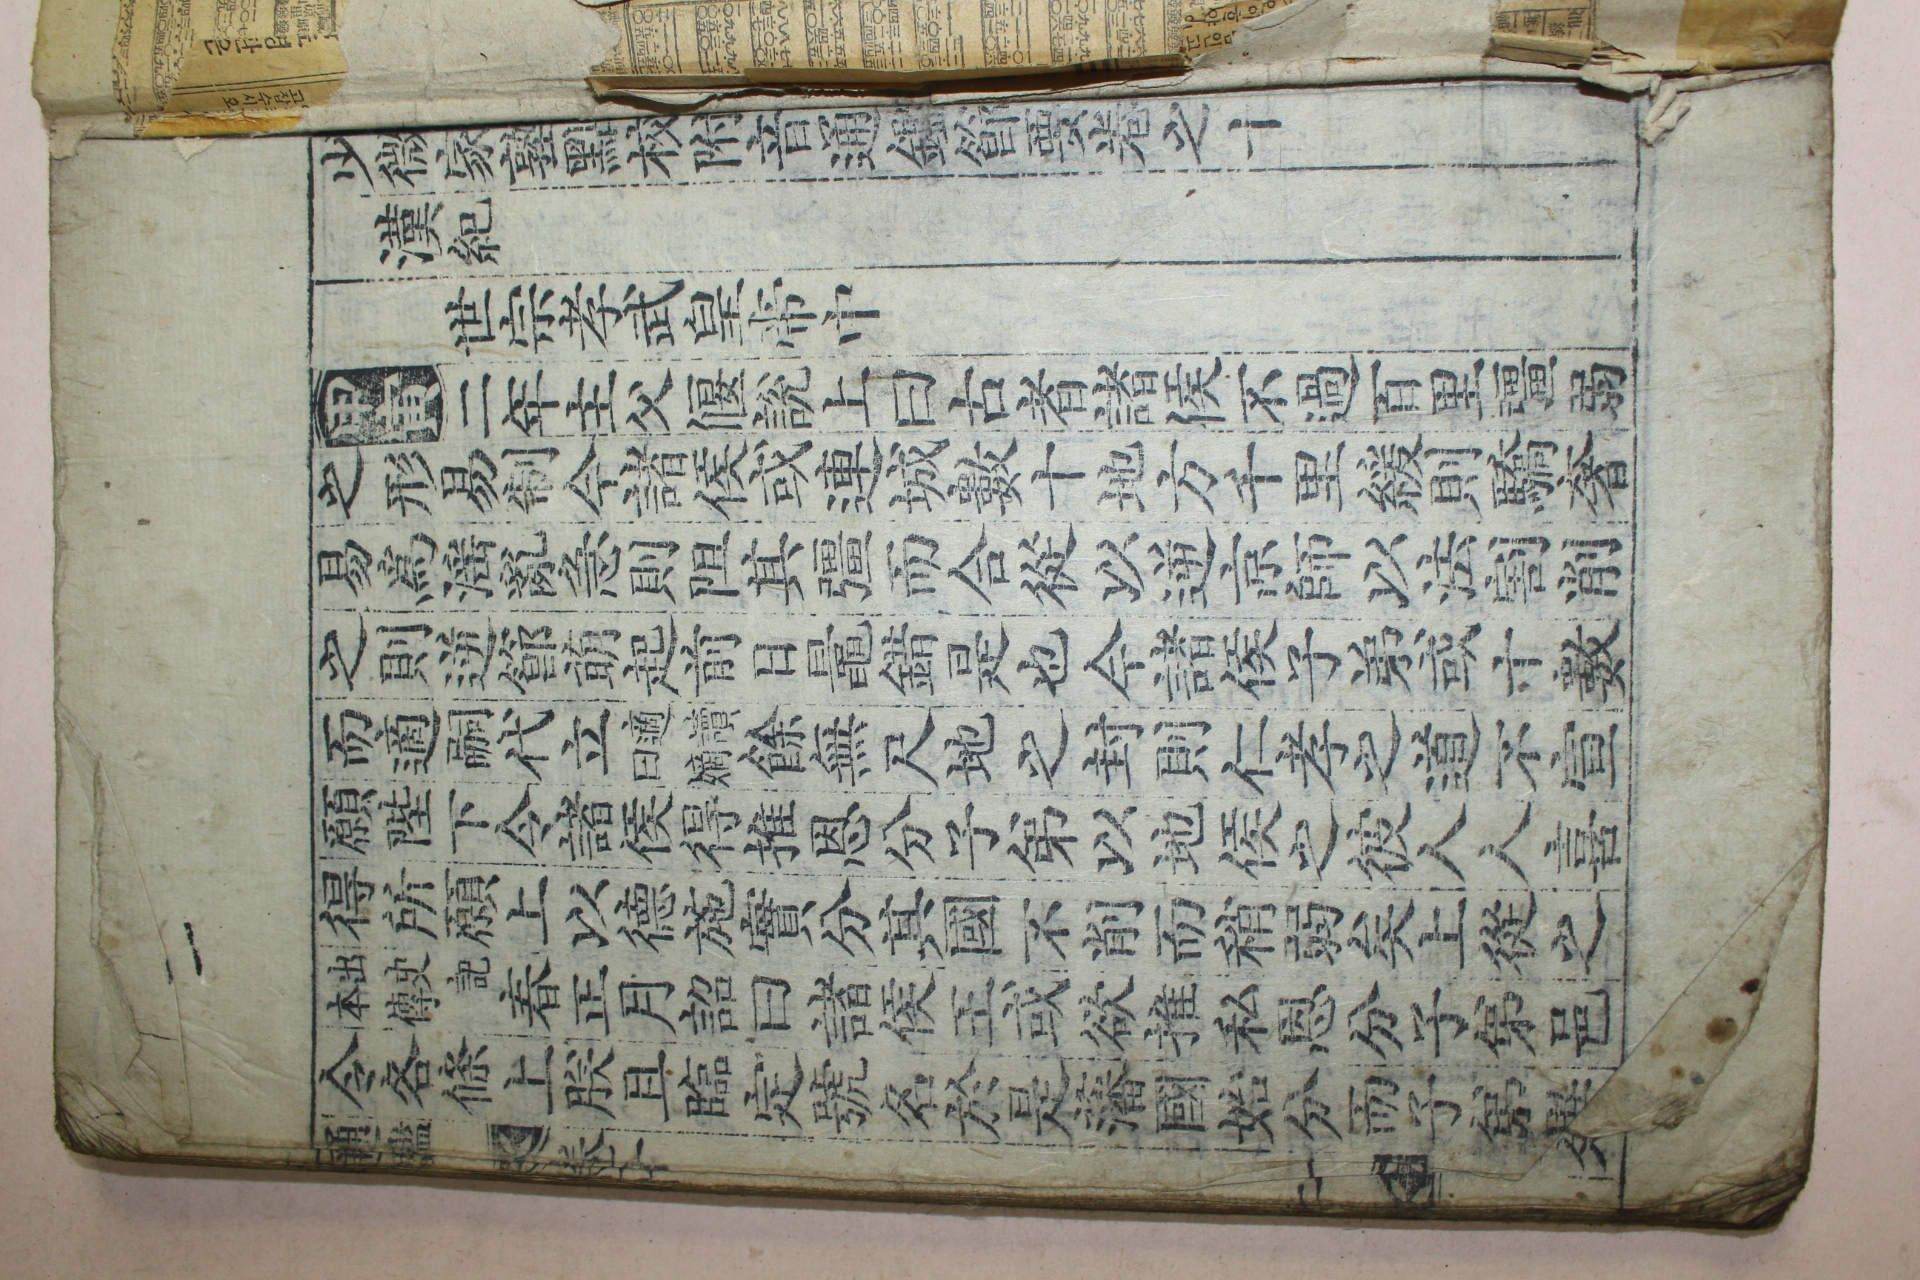 少微家塾點校附音通鑑節要卷之十
漢紀
世宗孝武皇帝中
甲寅二年主父偃說上曰古者諸侯不過百里疆弱
之形易制今諸侯或連城數十地方千里緩則驕奢
易爲淫亂急則阻其疆而合從以逆京師以法割削
之則逆節萌起前日鼂錯是也今諸侯子弟或十數
而適嗣代立適讀曰嫡餘無尺地之封則仁孝之道不宣
願陛下令諸侯得推恩分子弟以地侯之彼人人喜
得所願上以德施實分其國不削而稍弱矣上從之
出史記本傳春正月詔曰諸侯王或欲推私恩分子弟邑
令各條上朕且臨定號名於是藩國始分而子弟畢
通鑑 卷之十 一